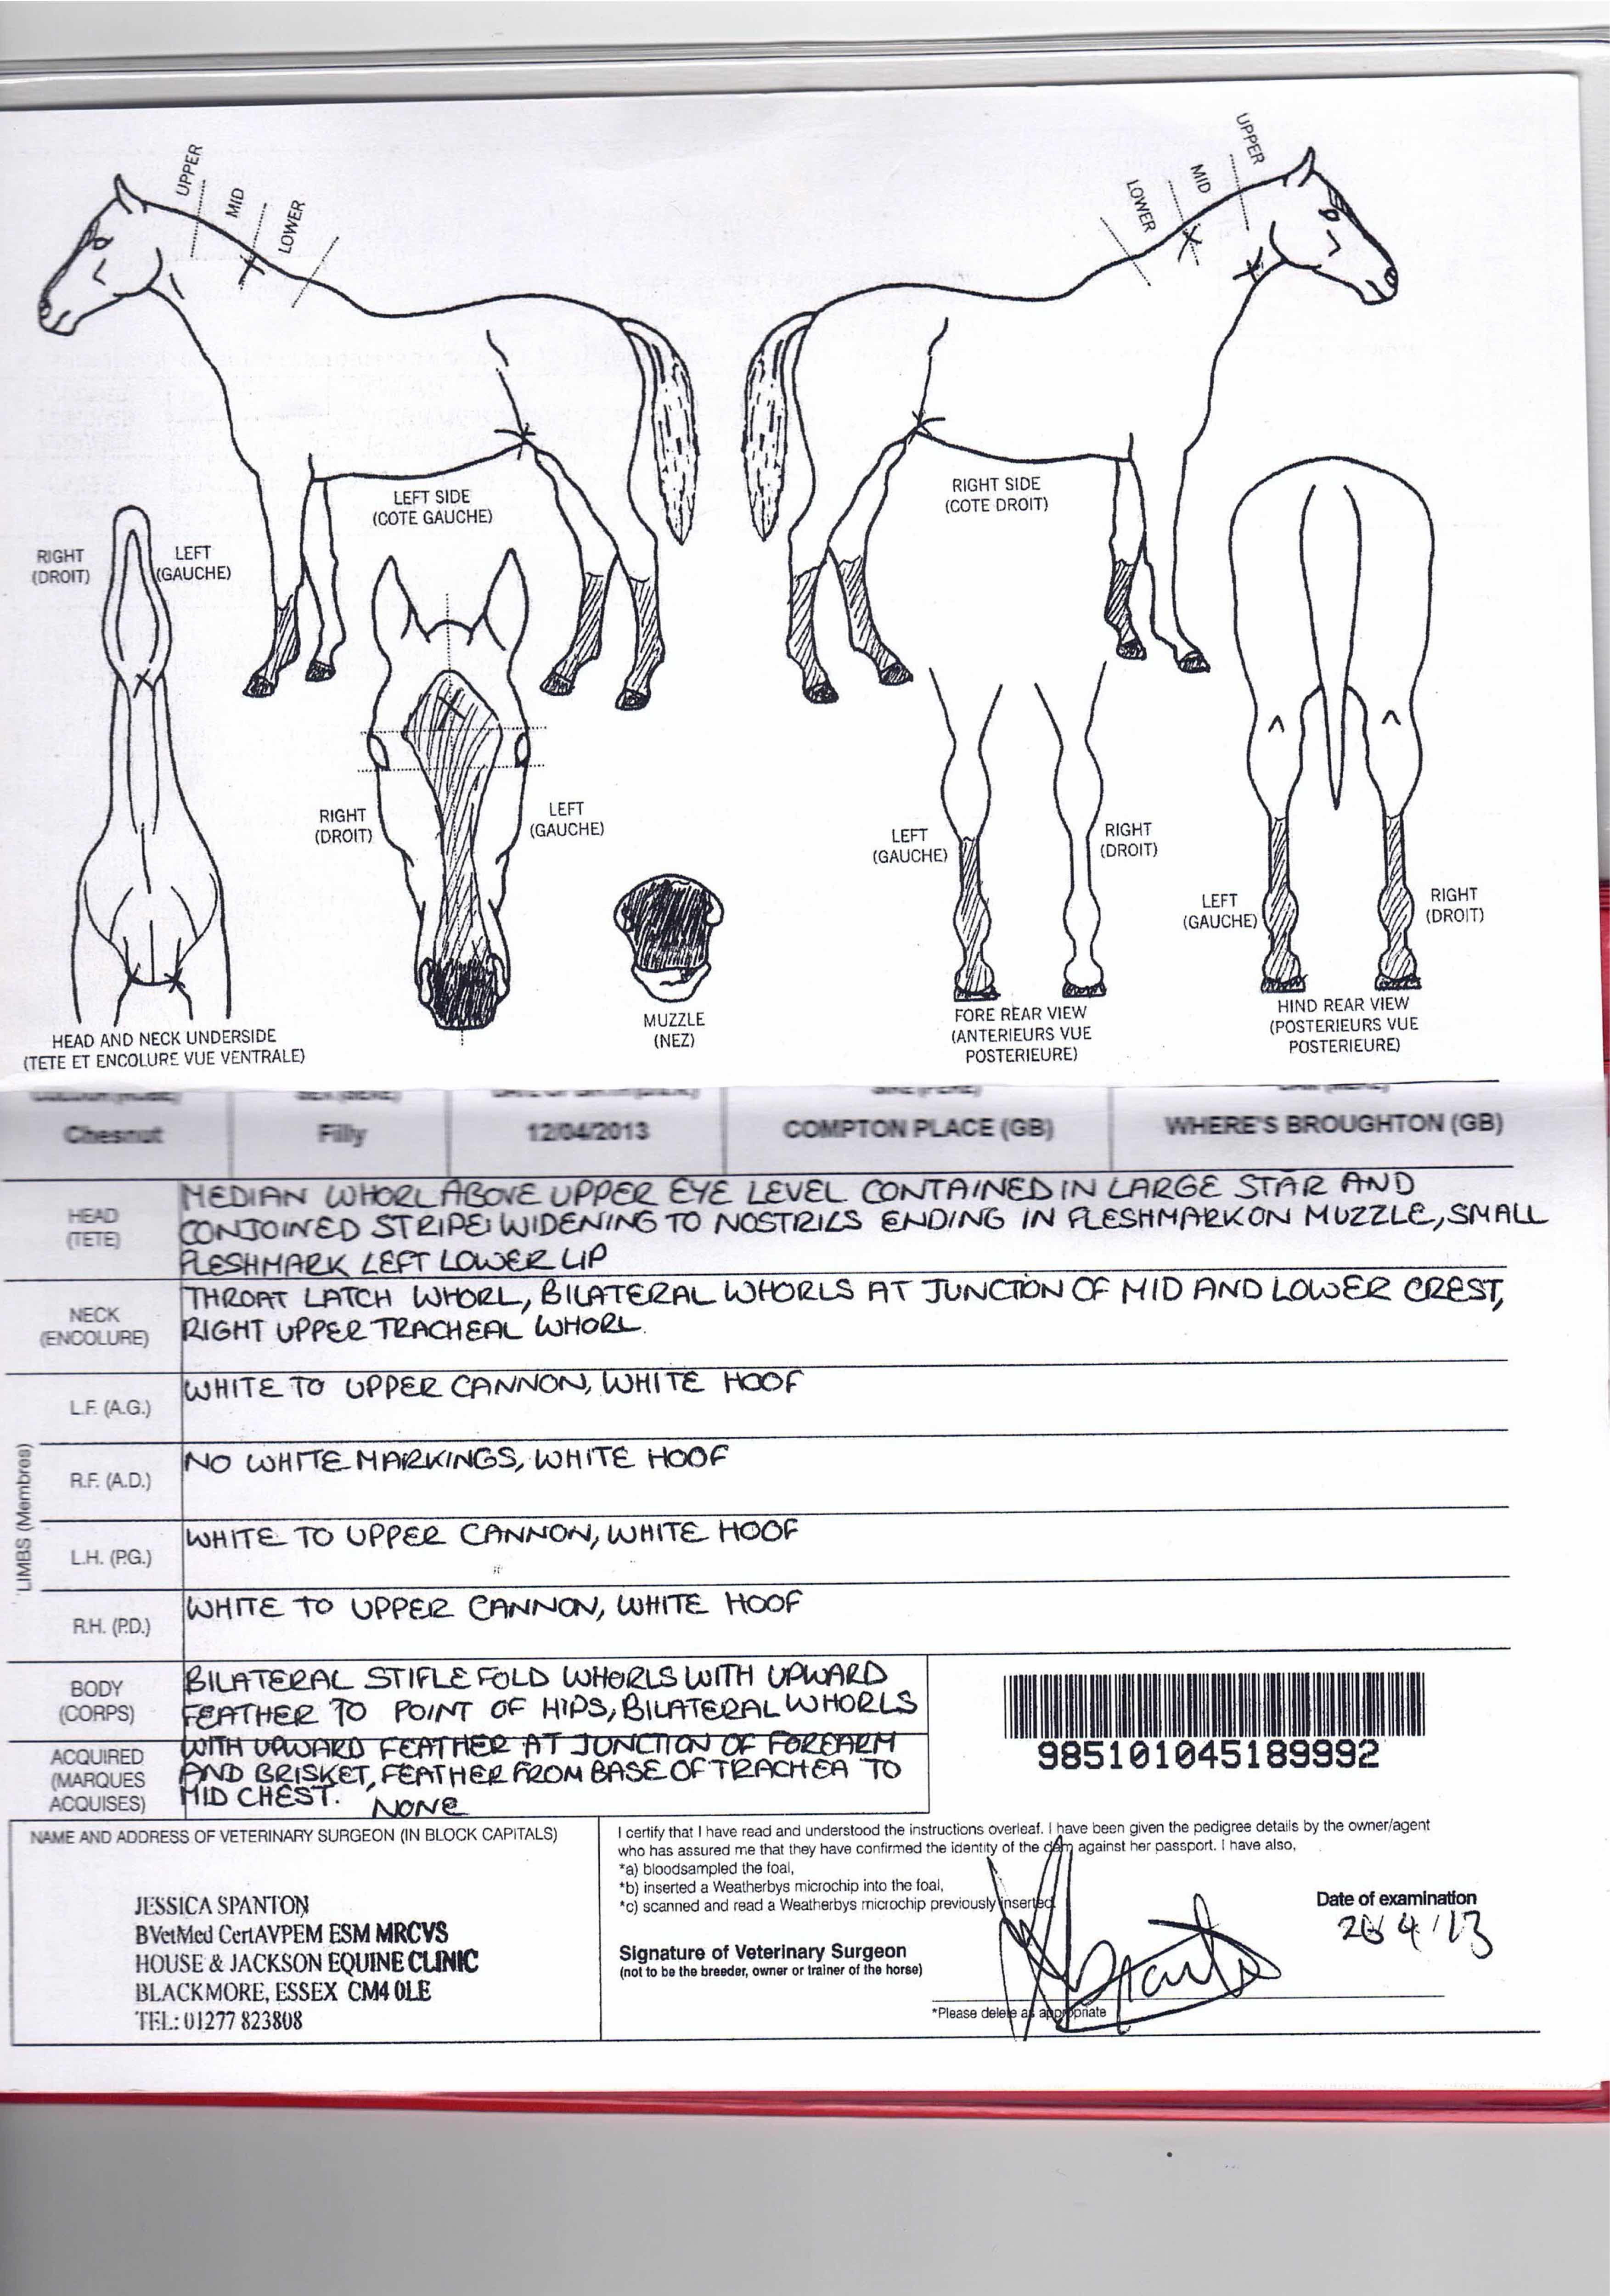 UPPER
MID
LOWER
UPPER
MID
LOWER
LEFT SIDE
(COTE GAUCHE)
RIGHT SIDE
(COTE DROIT)
RIGHT
(DROIT)
LEFT
(GAUCHE)
RIGHT
(DROIT)
LEFT
(GAUCHE)
LEFT
(GAUCHE)
RIGHT
(DROIT)
LEFT
(GAUCHE)
RIGHT
(DROIT)
HEAD AND NECK UNDERSIDE
(TETE ET ENCOLURE VUE VENTRALE)
MUZZLE
(NEZ)
FORE REAR VIEW
(ANTERIEURS VUE
POSTERIEURE)
HIND REAR VIEW
(POSTERIEURS VUE
POSTERIEURE)
Chesnut Filly 12/04/2013 COMPTON PLACE (GB) WHERE'S BROUGHTON (GB)
HEAD
(TETE)
MEDIAN WHORL ABOVE UPPER EYE LEVEL CONTAINED IN LARGE STAR AND
CONJOINED STRIPE WIDENING TO NOSTRILS ENDING IN FLESHMARK ON MUZZLE, SMALL
FLESHMARK LEFT LOWER LIP
NECK
(ENCOLURE)
THROAT LATCH WHORL, BILATERAL WHORLS AT JUNCTION OF MID AND LOWER CREST,
RIGHT UPPER TRACHEAL WHORL.
LIMBS (Membres)
L.F. (A.G.) WHITE TO UPPER CANNON, WHITE HOOF
R.F. (A.D.) NO WHITE MARKINGS, WHITE HOOF
L.H. (P.G.) WHITE TO UPPER CANNON, WHITE HOOF
R.H. (P.D.) WHITE TO UPPER CANNON, WHITE HOOF
BODY
(CORPS)
BILATERAL STIFLE FOLD WHORLS WITH UPWARD
FEATHER TO POINT OF HIPS, BILATERAL WHORLS
WITH UPWARD FEATHER AT JUNCTION OF FOREARM
AND BRISKET, FEATHER FROM BASE OF TRACHEA TO
MID CHEST.
ACQUIRED
(MARQUES
ACQUISES)
NONE
985101045189992
NAME AND ADDRESS OF VETERINARY SURGEON (IN BLOCK CAPITALS)
JESSICA SPANTON
BVetMed CertAVPEM ESM MRCVS
HOUSE & JACKSON EQUINE CLINIC
BLACKMORE, ESSEX CM4 0LE
TEL: 01277 823808
I certify that I have read and understood the instructions overleaf. I have been given the pedigree details by the owner/agent
who has assured me that they have confirmed the identity of the dam against her passport. I have also,
*a) bloodsampled the foal,
*b) inserted a Weatherbys microchip into the foal,
*c) scanned and read a Weatherbys microchip previously inserted.
Signature of Veterinary Surgeon
(not to be the breeder, owner or trainer of the horse)
*Please delete as appropriate
Date of examination